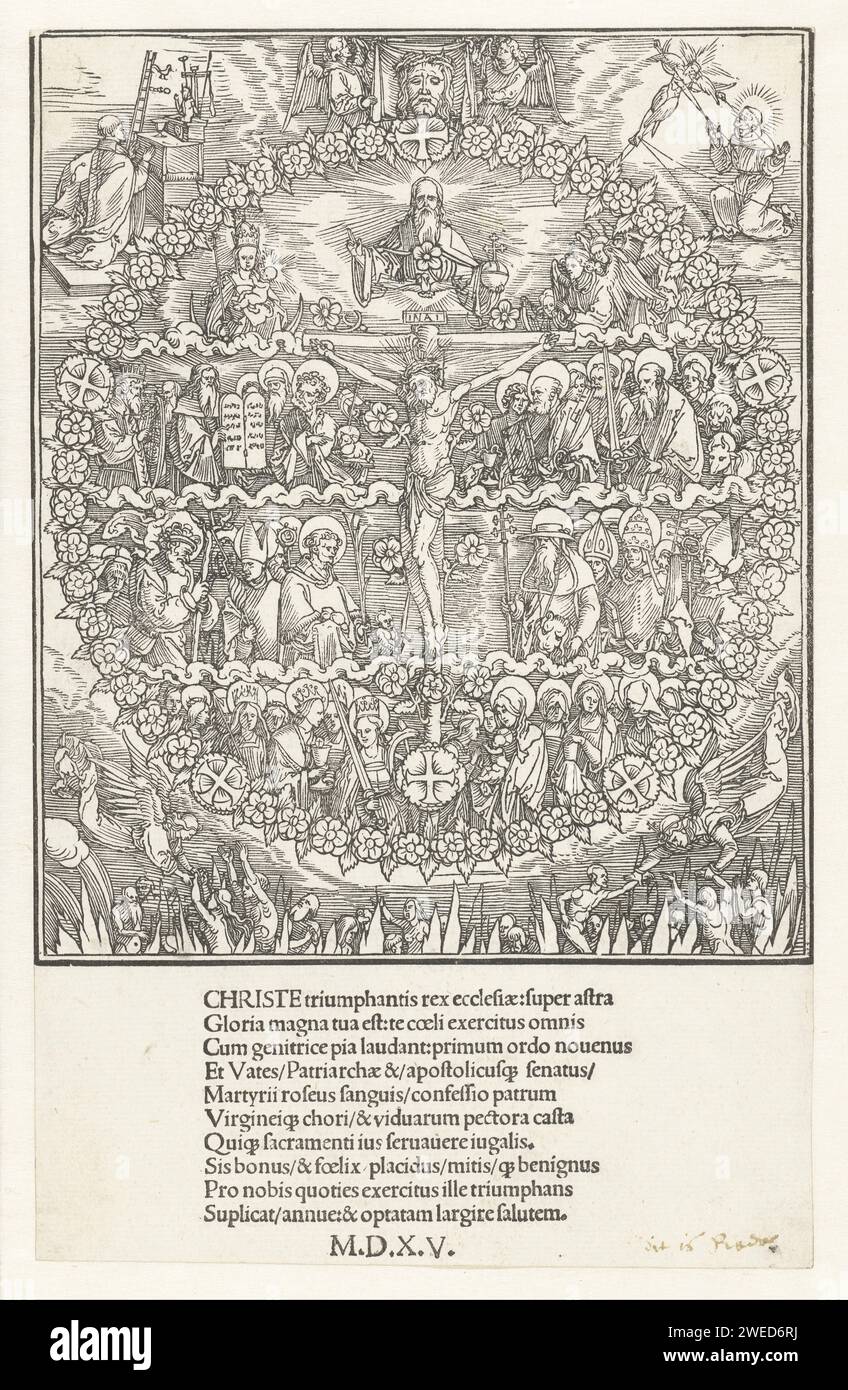 INRI
CHRISTE triumphantis rex ecclesiæ:super astra
Gloria magna tua est:te cœli exercitus omnis
Cum genitrice pia laudant:primum ordo nouenus
Et Vates/Patriarchæ &/apostolicusqꝫ senatus/
Martyrii roseus sanguis/confessio patrum
Virgineiqꝫ chori/& viduarum pectora casta
Quiqꝫ sacramenti ius seruauere iugalis.
Sis bonus/& fœlix placidus/mitis/qꝫ benignus
Pro nobis quoties exercitus ille triumphans
Suplicat/annue:& optatam largire salutem.
M.D.X.V.
alamy
Image ID: 2WED6RJ
www.alamy.com